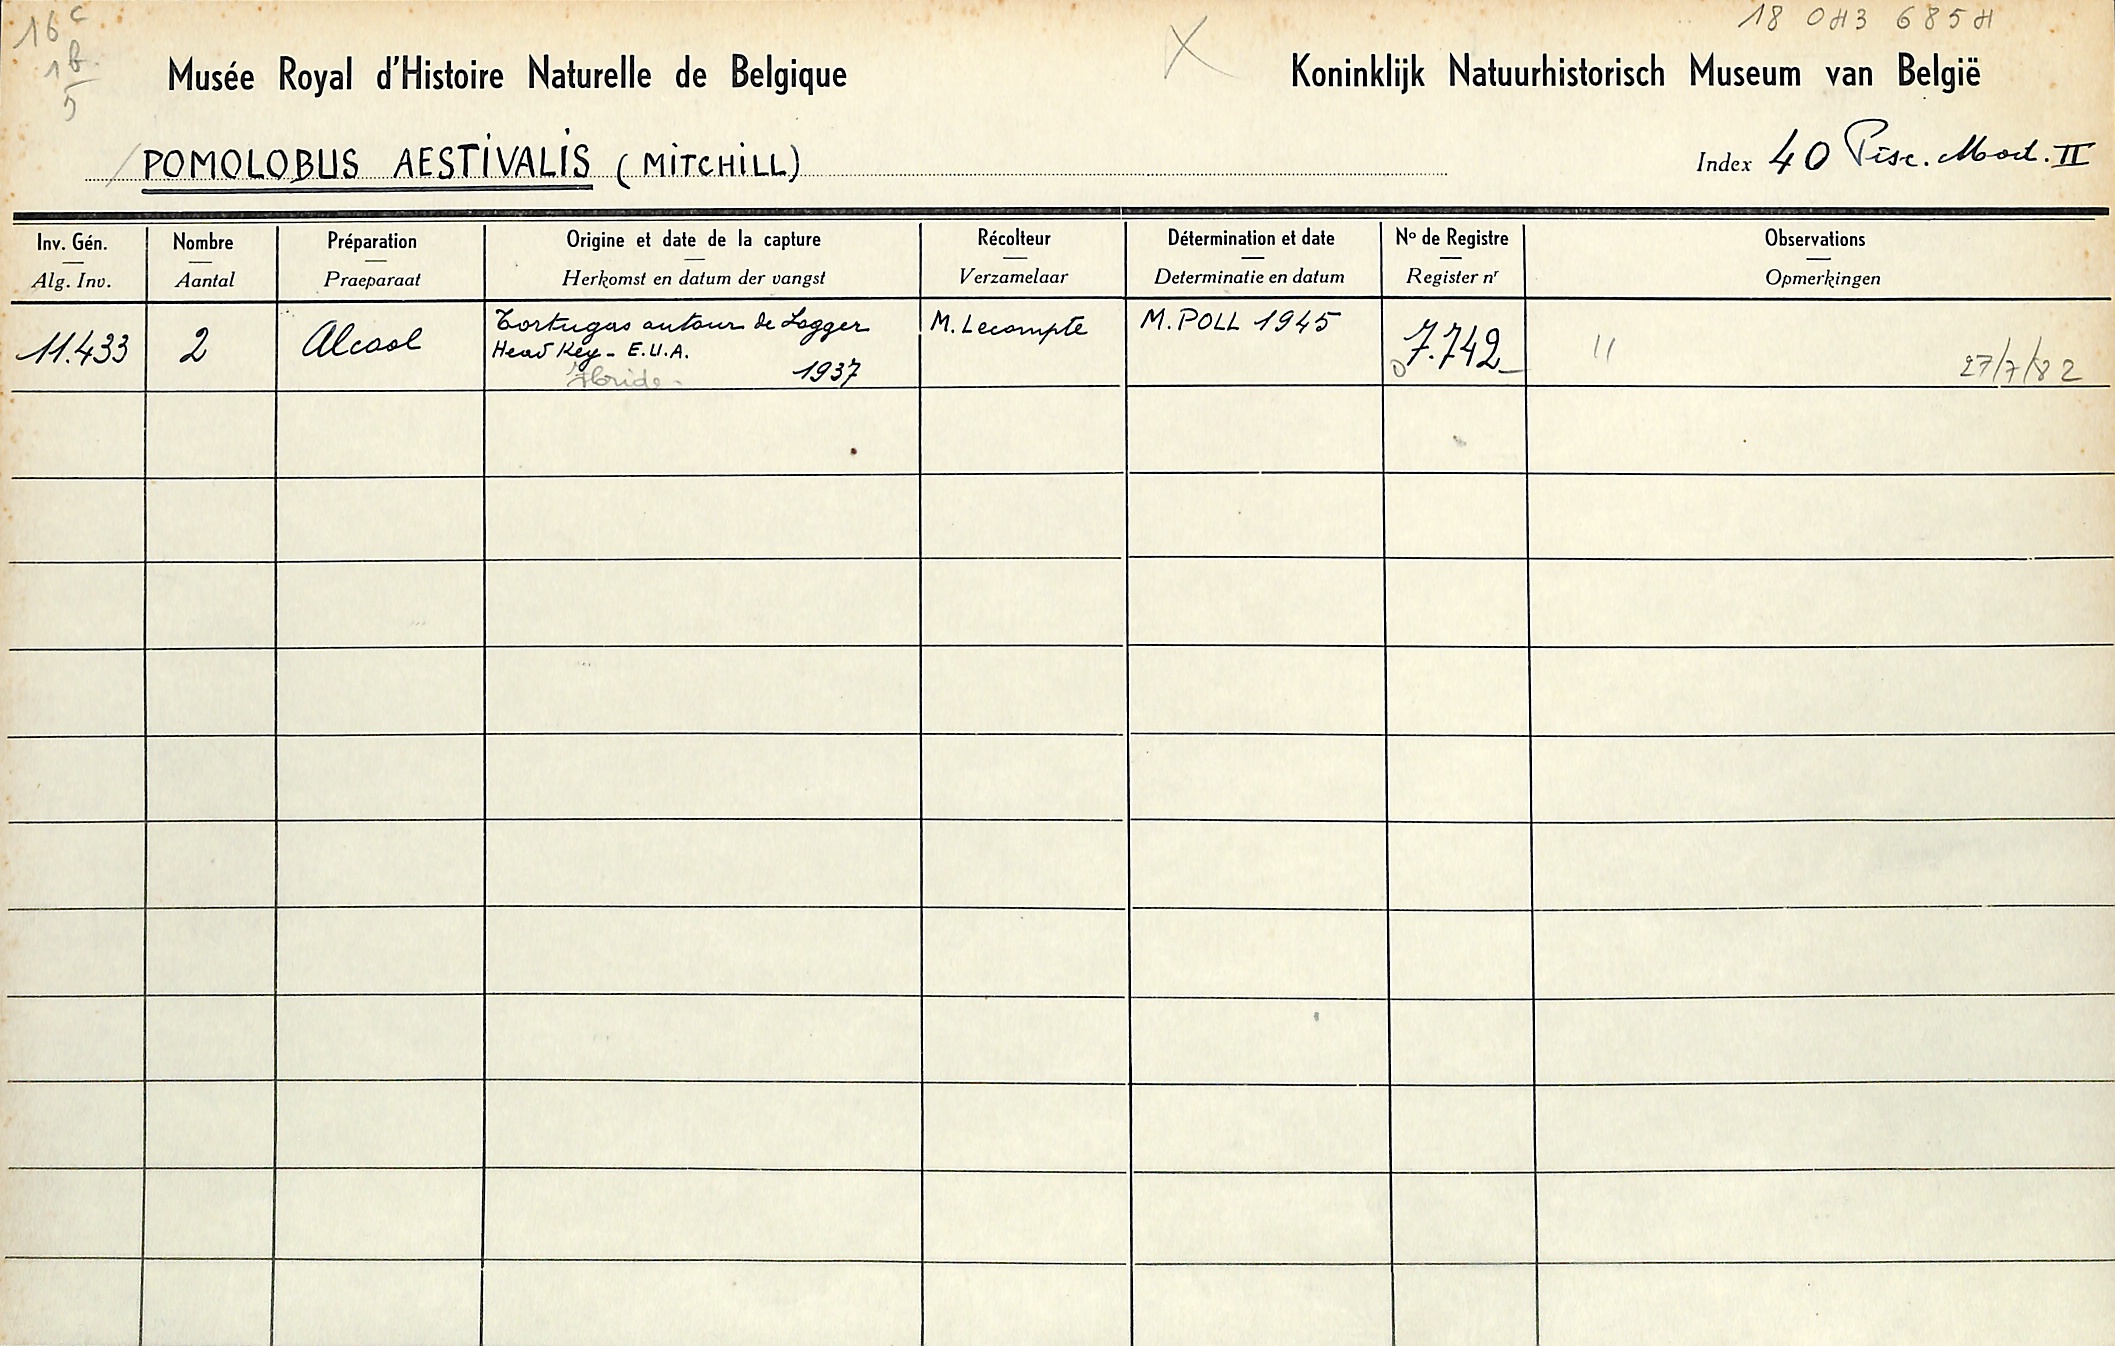 16 c
18 0H3 685H
1 b.
5
X
Musée Royal d'Histoire Naturelle de Belgique
Koninklijk Natuurhistorisch Museum van België
POMOLOBUS AESTIVALIS (MITCHILL)
Index 40 Pisc. Mod. II
Inv. Gén. Nombre Préparation Origine et date de la capture Récolteur Détermination et date No de Registre Observations
Alg. Inv. Aantal Praeparaat Herkomst en datum der vangst Verzamelaar Determinatie en datum Register nr Opmerkingen
11.433 2 Alcool Tortugas autour de Logger M. Lecompte M. POLL 1945 7.742 "
Head Key - E.U.A.
Floride. 1937
27/7/82